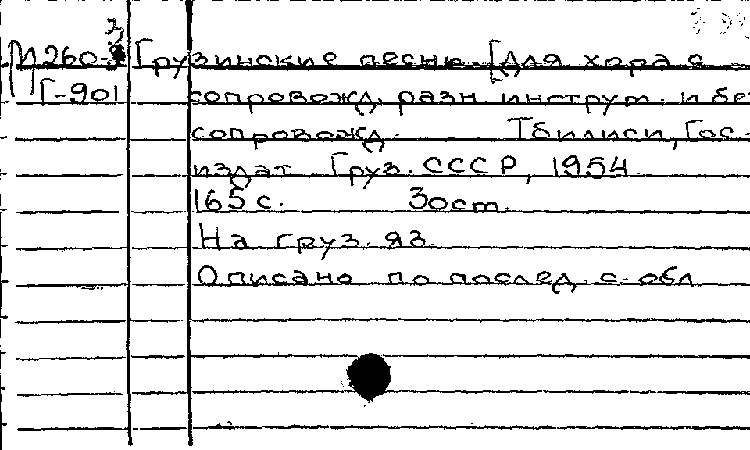 М260-3 Грузинские песни. [Для хора с
Г-901 сопровожд. разн. инструм. и бе
сопровожд. Тбилиси, Гос.
издат Груз. ССР, 1954
165 с. Зост.
На груз. яз.
Описано по послед. с. обл